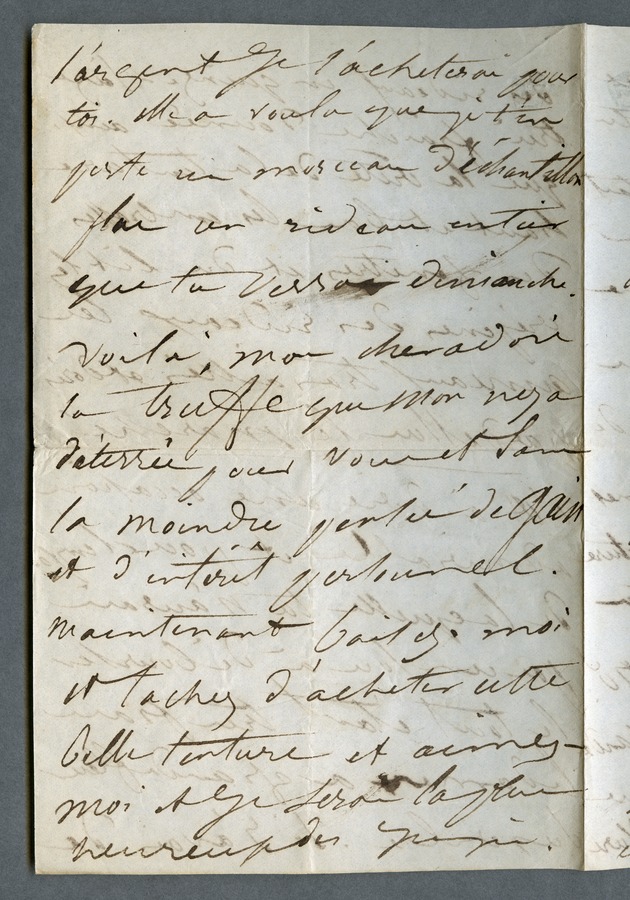 l'argent Je l'acheterai pour
toi. Il a voulu que je t'em
porte un morceau d'échantillon
plus un rideau entier
que tu verras dimanche.
Voilà, mon cher adoré
la truffe que mon neza
déterrée pour vous et Sans
la moindre pensée de Gain
et d'intérêt personnel.
maintenant baisez. moi
et tachez d'acheter cette
belle tenture et aimez-
moi et Je Serai la plus
heureuse des